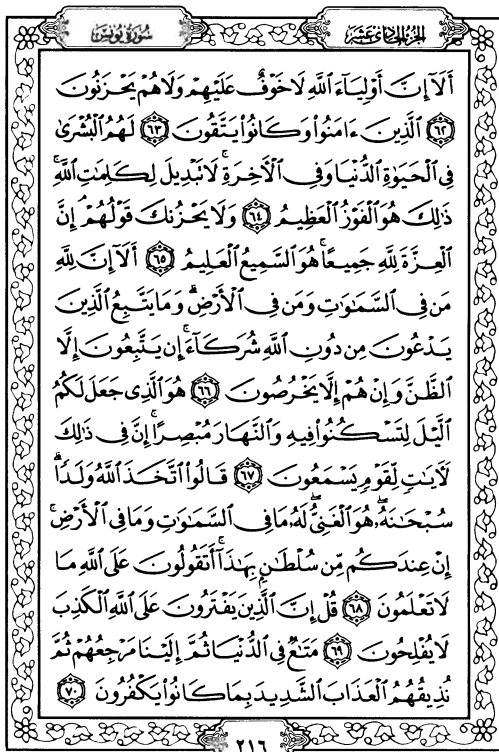 سُورَةُ يُونُسَ
الجزء الحادي عشر
أَلَآ إِنَّ أَوْلِيَآءَ ٱللَّهِ لَا خَوْفٌ عَلَيْهِمْ وَلَا هُمْ يَحْزَنُونَ
﴿٦٢﴾ ٱلَّذِينَ ءَامَنُوا۟ وَكَانُوا۟ يَتَّقُونَ ﴿٦٣﴾ لَهُمُ ٱلْبُشْرَىٰ
فِى ٱلْحَيَوٰةِ ٱلدُّنْيَا وَفِى ٱلْءَاخِرَةِ ۚ لَا تَبْدِيلَ لِكَلِمَٰتِ ٱللَّهِ ۚ
ذَٰلِكَ هُوَ ٱلْفَوْزُ ٱلْعَظِيمُ ﴿٦٤﴾ وَلَا يَحْزُنكَ قَوْلُهُمْ ۘ إِنَّ
ٱلْعِزَّةَ لِلَّهِ جَمِيعًا ۚ هُوَ ٱلسَّمِيعُ ٱلْعَلِيمُ ﴿٦٥﴾ أَلَآ إِنَّ لِلَّهِ
مَن فِى ٱلسَّمَٰوَٰتِ وَمَن فِى ٱلْأَرْضِ ۗ وَمَا يَتَّبِعُ ٱلَّذِينَ
يَدْعُونَ مِن دُونِ ٱللَّهِ شُرَكَآءَ ۚ إِن يَتَّبِعُونَ إِلَّا
ٱلظَّنَّ وَإِنْ هُمْ إِلَّا يَخْرُصُونَ ﴿٦٦﴾ هُوَ ٱلَّذِى جَعَلَ لَكُمُ
ٱلَّيْلَ لِتَسْكُنُوا۟ فِيهِ وَٱلنَّهَارَ مُبْصِرًا ۚ إِنَّ فِى ذَٰلِكَ
لَءَايَٰتٍ لِّقَوْمٍ يَسْمَعُونَ ﴿٦٧﴾ قَالُوا۟ ٱتَّخَذَ ٱللَّهُ وَلَدًا ۗ
سُبْحَٰنَهُۥ ۖ هُوَ ٱلْغَنِىُّ ۖ لَهُۥ مَا فِى ٱلسَّمَٰوَٰتِ وَمَا فِى ٱلْأَرْضِ ۚ
إِنْ عِندَكُم مِّن سُلْطَٰنٍۭ بِهَٰذَآ ۚ أَتَقُولُونَ عَلَى ٱللَّهِ مَا
لَا تَعْلَمُونَ ﴿٦٨﴾ قُلْ إِنَّ ٱلَّذِينَ يَفْتَرُونَ عَلَى ٱللَّهِ ٱلْكَذِبَ
لَا يُفْلِحُونَ ﴿٦٩﴾ مَتَٰعٌ فِى ٱلدُّنْيَا ثُمَّ إِلَيْنَا مَرْجِعُهُمْ ثُمَّ
نُذِيقُهُمُ ٱلْعَذَابَ ٱلشَّدِيدَ بِمَا كَانُوا۟ يَكْفُرُونَ ﴿٧٠﴾
٢١٦